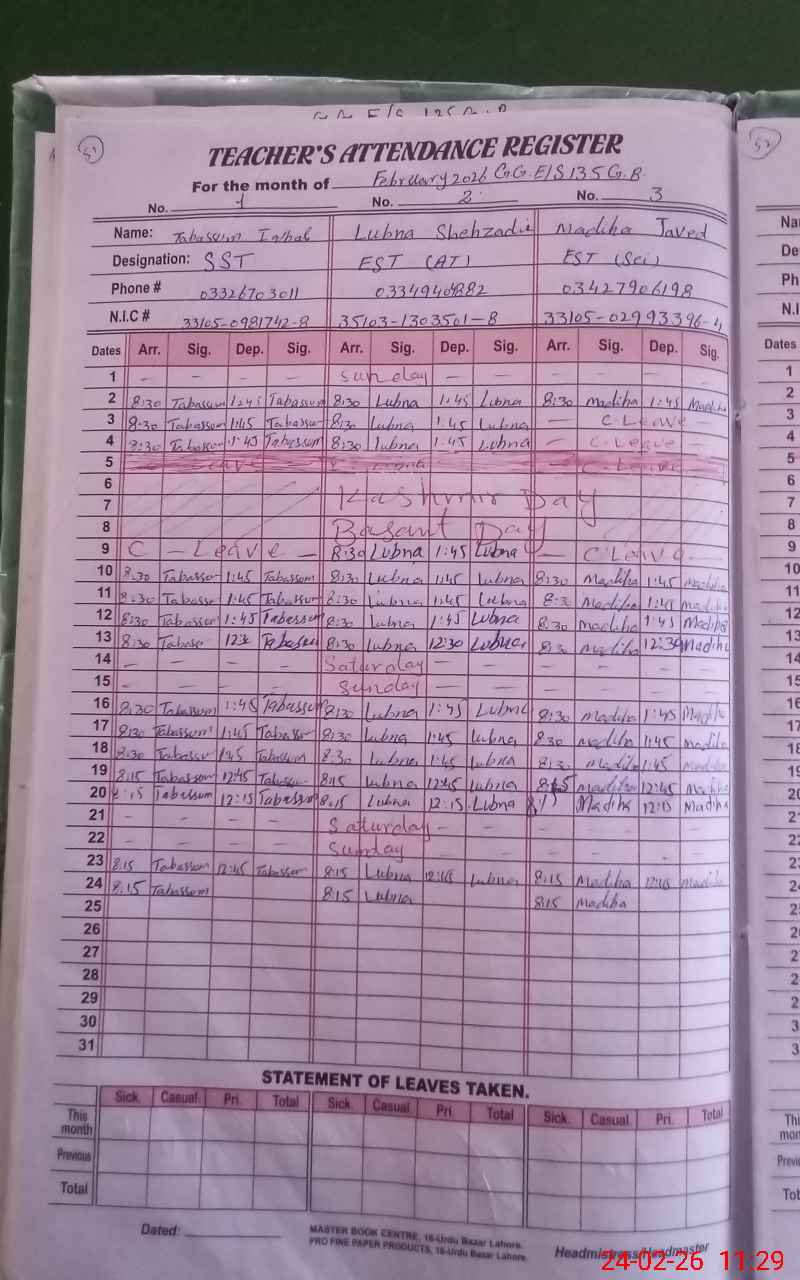 51
TEACHER'S ATTENDANCE REGISTER
For the month of February 2026 G.G.E/S 135 G.B.
No. 1 No. 2 No. 3
Name: Tabassum Iqbal Lubna Shehzadie Madiha Javed
Designation: SST EST (AT) EST (Sci)
Phone # 03326703011 03427906198
N.I.C # 33105-0981742-8 35103-1303501-8
Dates Arr. Sig. Dep. Sig. Arr. Sig. Dep. Sig. Arr. Sig. Dep. Sig.
1 — — — — Sunday — — — — — —
2 8:30 Tabassum 1:45 Tabassum 8:30 Lubna 1:45 Lubna 8:30 Madiha 1:45 Madiha
3 8:30 Tabassum 1:45 Tabassum 8:30 Lubna 1:45 Lubna — C-Leave
4 8:30 Tabassum 1:45 Tabassum 8:30 Lubna 1:45 Lubna — C-Leave —
5 Leave C-Leave
6
7 Kashmir Day
8 Basant Day
9 C — Leave — 8:30 Lubna 1:45 Lubna — C Leave —
10 8:30 Tabassom 1:45 Tabassom 8:30 Lubna 1:45 Lubna 8:30 Madiha 1:45 Madiha
11 8:30 Tabassum 1:45 Tabassum 8:30 Lubna 1:45 Lubna 8:30 Madiha 1:45 Madiha
12 8:30 Tabassum 1:45 Tabassum 8:30 Lubna 1:45 Lubna 8:30 Madiha 1:45 Madiha
13 8:30 Tabasso 12:30 8:30 Lubna 12:30 Lubna 8:30 Madiha 12:30 Madiha
14 — — — — Saturday — — — — — —
15 — — — — Sunday — — — — — —
16 8:30 Tabassum 1:45 Tabassum 8:30 Lubna 1:45 Lubna 8:30 Madiha 1:45 Madiha
17 8:30 Tabassum 1:45 Tabassum 8:30 Lubna 1:45 Lubna 8:30 Madiha 1:45 Madiha
18 8:30 Tabassum 1:45 Tabassum 8:30 Lubna 1:45 Lubna 8:30 Madiha 1:45 Madiha
19 8:15 Tabassum 12:45 Tabassum 8:15 Lubna 12:45 Lubna 8:15 Madiha 12:45 Madiha
20 8:15 Tabassum 12:15 Tabassum 8:15 Lubna 12:15 Lubna Madiha 12:15 Madiha
21 — — — — Saturday — — — — — —
22 — — — — Sunday — — — — — —
23 8:15 Tabassum 12:45 Tabassum 8:15 Lubna 12:45 Lubna 8:15 Madiha 12:45 Madiha
24 8:15 Tabassum 8:15 Lubna 8:15 Madiha
25
26
27
28
29
30
31
STATEMENT OF LEAVES TAKEN.
Sick. Casual. Pri. Total Sick. Casual. Pri. Total Sick. Casual. Pri. Total
This month
Previous
Total
Dated:
MASTER BOOK CENTRE, 16-Urdu Bazar Lahore.
PRO FINE PAPER PRODUCTS, 16-Urdu Bazar Lahore.
Headmistress/Headmaster
24-02-26 11:29